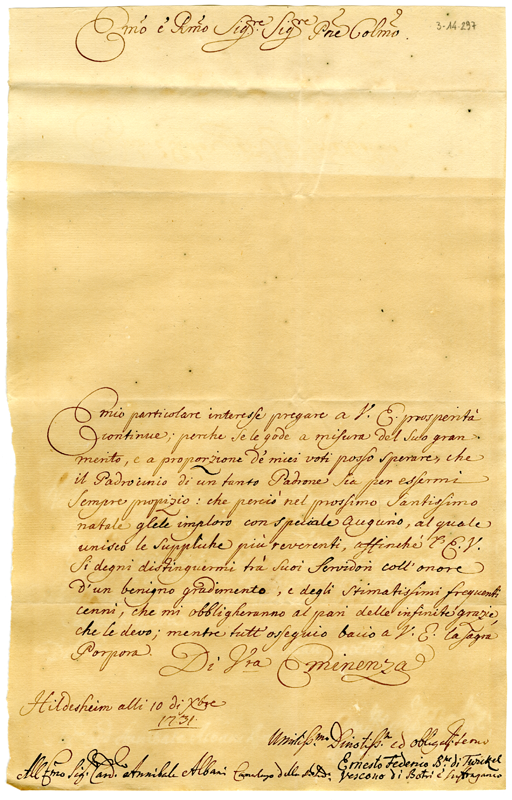 Emo e Rmo Sigre Sigre Pne Colmo.
3-14-297
E mio particolare interesse pregare a V. E. prosperità
continue; perche se le gode a misura del suo gran
merito, e a proporzione de' miei voti posso sperare, che
il Padrocinio di un tanto Padrone sia per essermi
sempre propizio: che perciò nel prossimo Santissimo
natale glele imploro con speciale auguno, al quale
unisco le suppliche più reverenti, affinché V. E. V.
si degni distinguermi trà suoi Servidori coll'onore
d'un benigno gradimento, e degli stimatissimi frequenti
cenni, che mi obbligheranno al pari delle infinite grazie
che le devo; mentre tutt'ossequio bacio a V. E. la sagra
Porpora. Di Vra Eminenza
Hildesheim alli 10 di Xbre
1731.
Umiliss.mo Divotiss.o ed obbligatis. Servo
Ernesto Federico Bne di Twickel
Vescovo di Botri e Suffraganeo
All Emo Sigr Cardo Annibale Albani